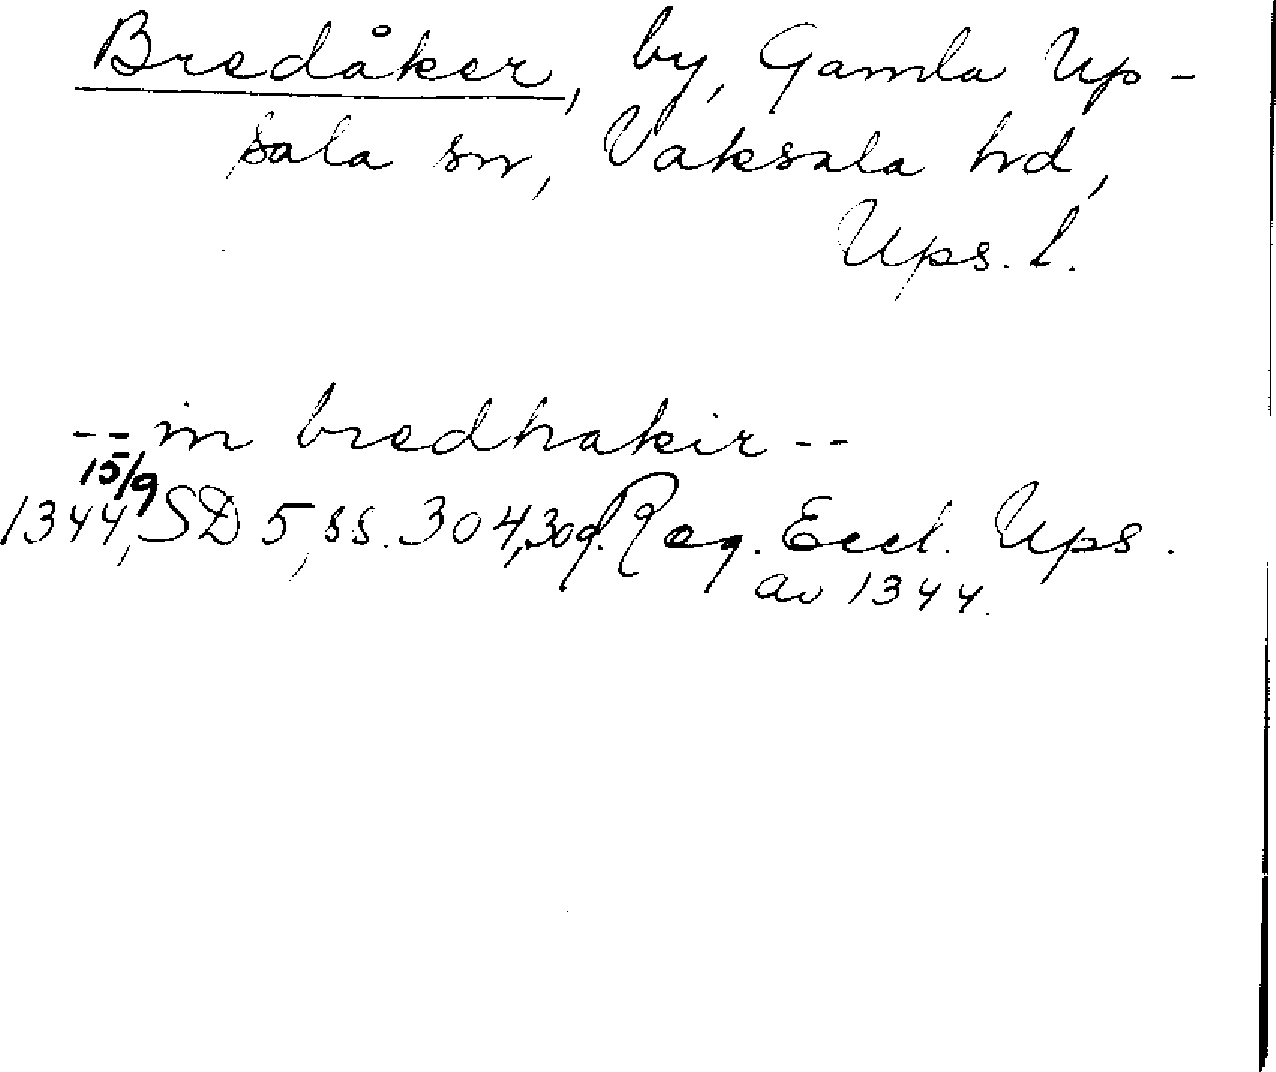 Bredåker, by, Gamla Up-
sala sn, Vaksala hd,
Ups. l.
-- in bredhakir --
15/9
1344, SD 5, ss. 304, 309. Reg. Eccl. Ups.
av 1344.